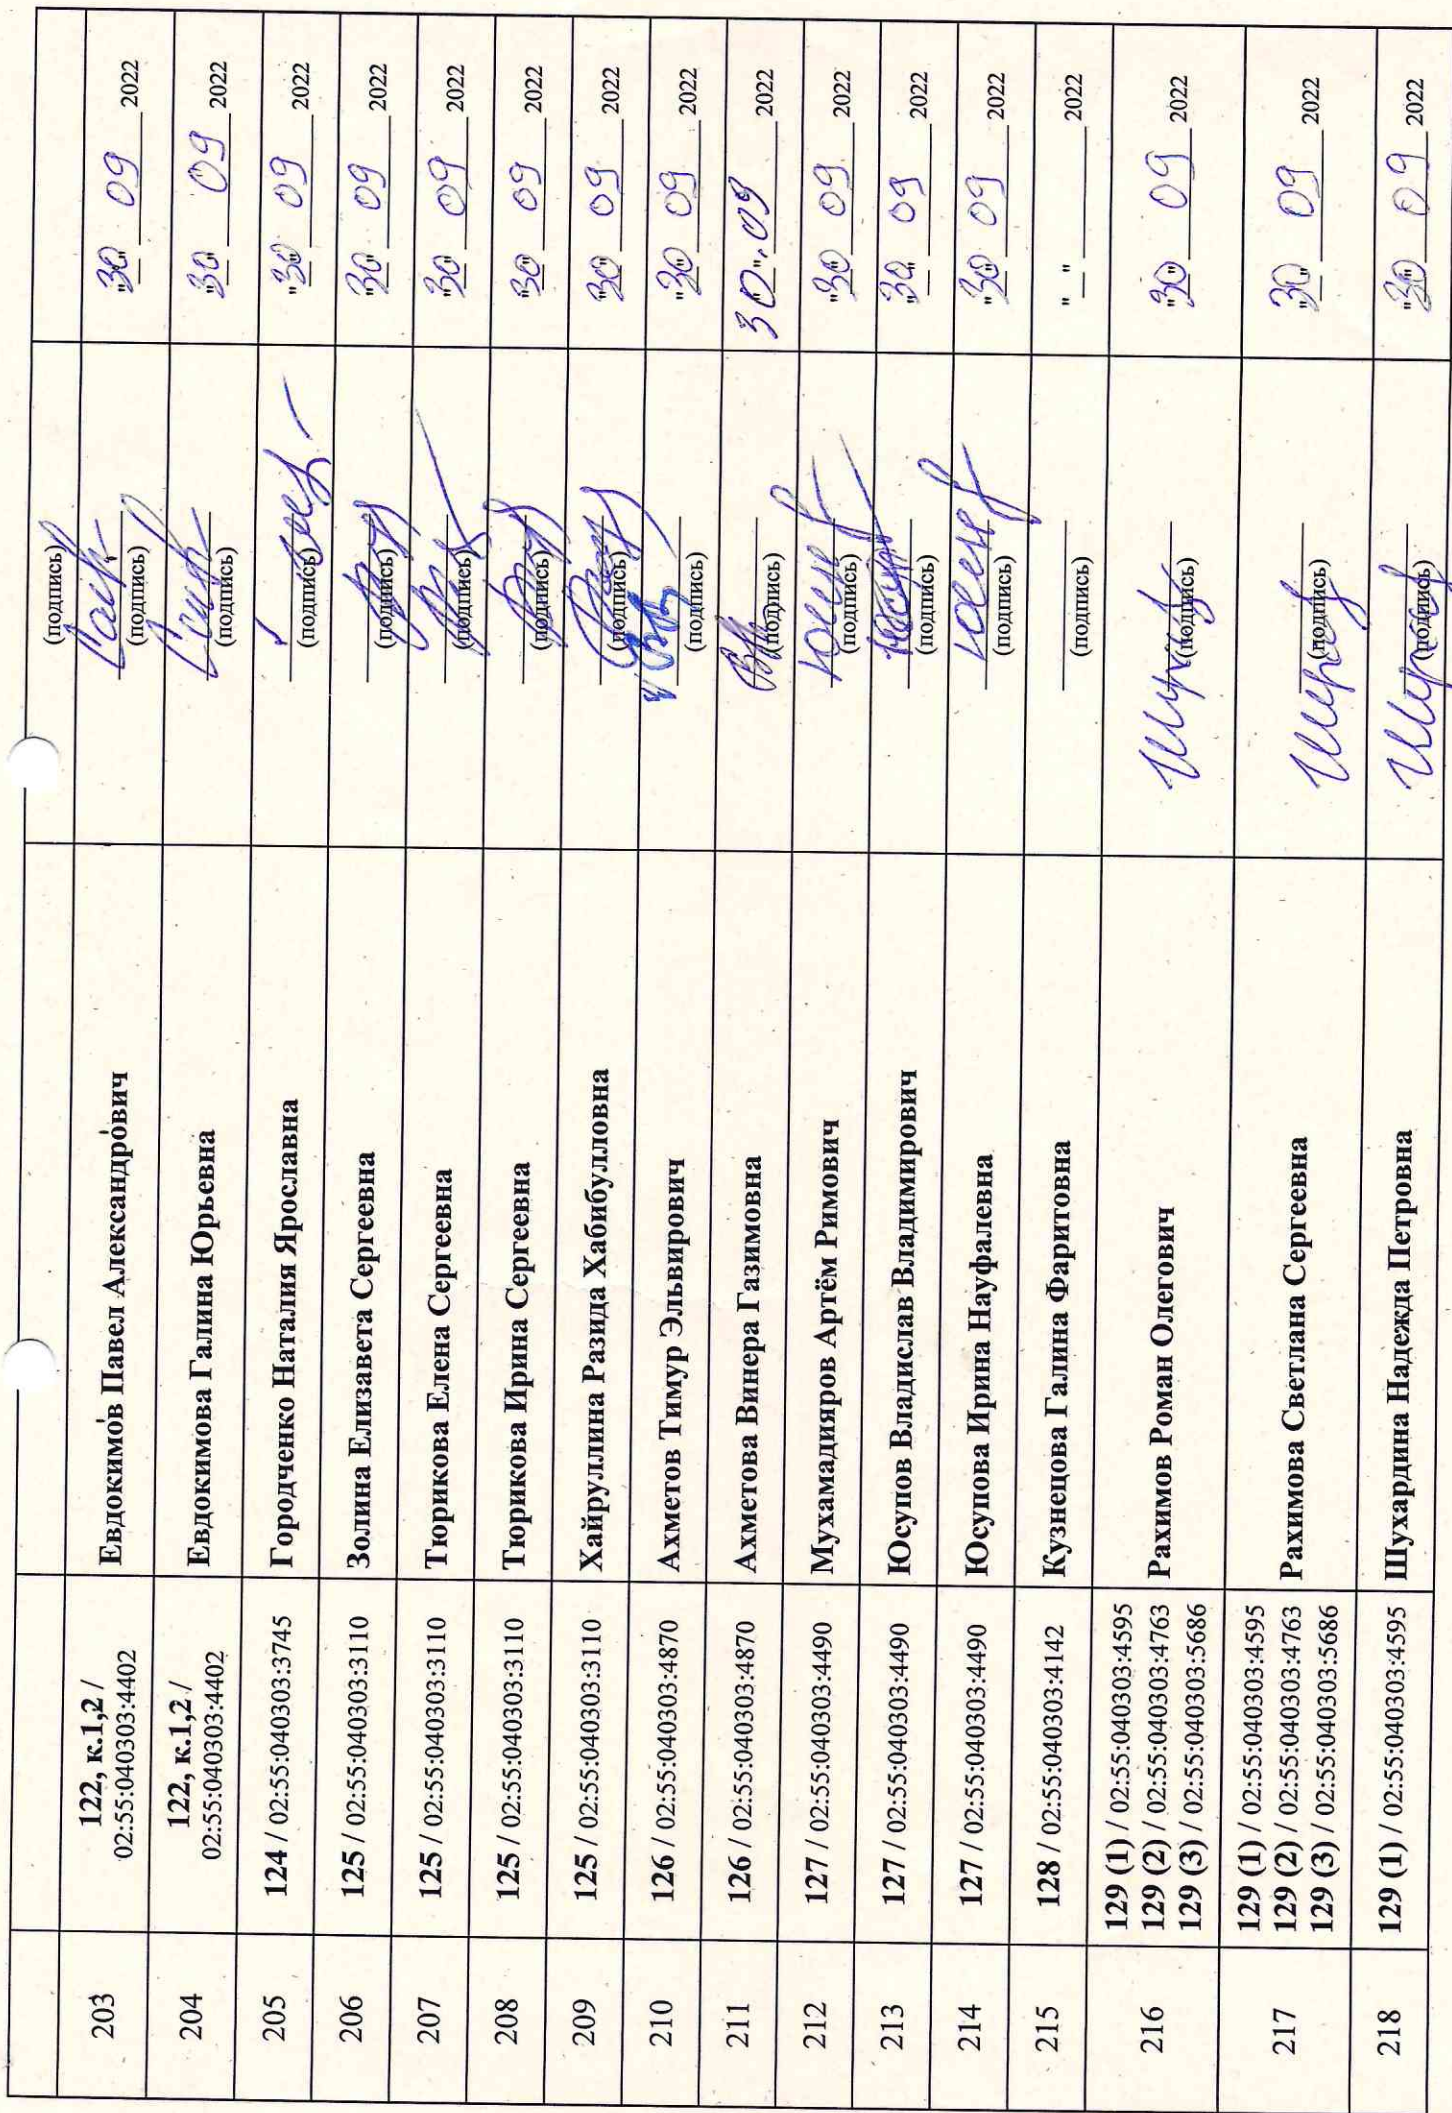 (подпись)
203 122, к.1,2 / Евдокимов Павел Александрович "30" 09 2022
02:55:040303:4402 (подпись)
204 122, к.1,2 / Евдокимова Галина Юрьевна "30" 09 2022
02:55:040303:4402 (подпись)
205 124 / 02:55:040303:3745 Городченко Наталия Ярославна (подпись) "30" 09 2022
206 125 / 02:55:040303:3110 Золина Елизавета Сергеевна (подпись) "30" 09 2022
207 125 / 02:55:040303:3110 Тюрикова Елена Сергеевна (подпись) "30" 09 2022
208 125 / 02:55:040303:3110 Тюрикова Ирина Сергеевна (подпись) "30" 09 2022
209 125 / 02:55:040303:3110 Хайруллина Разида Хабибулловна (подпись) "30" 09 2022
210 126 / 02:55:040303:4870 Ахметов Тимур Эльвирович (подпись) "30" 09 2022
211 126 / 02:55:040303:4870 Ахметова Винера Газимовна (подпись) 30". 09 2022
212 127 / 02:55:040303:4490 Мухамадияров Артём Римович (подпись) "30" 09 2022
213 127 / 02:55:040303:4490 Юсупов Владислав Владимирович (подпись) "30" 09 2022
214 127 / 02:55:040303:4490 Юсупова Ирина Науфалевна (подпись) "30" 09 2022
215 128 / 02:55:040303:4142 Кузнецова Галина Фаритовна (подпись) "_" 2022
129 (1) / 02:55:040303:4595
216 129 (2) / 02:55:040303:4763 Рахимов Роман Олегович (подпись) "30" 09 2022
129 (3) / 02:55:040303:5686
129 (1) / 02:55:040303:4595
217 129 (2) / 02:55:040303:4763 Рахимова Светлана Сергеевна (подпись) "30" 09 2022
129 (3) / 02:55:040303:5686
218 129 (1) / 02:55:040303:4595 Шухардина Надежда Петровна (подпись) "30" 09 2022